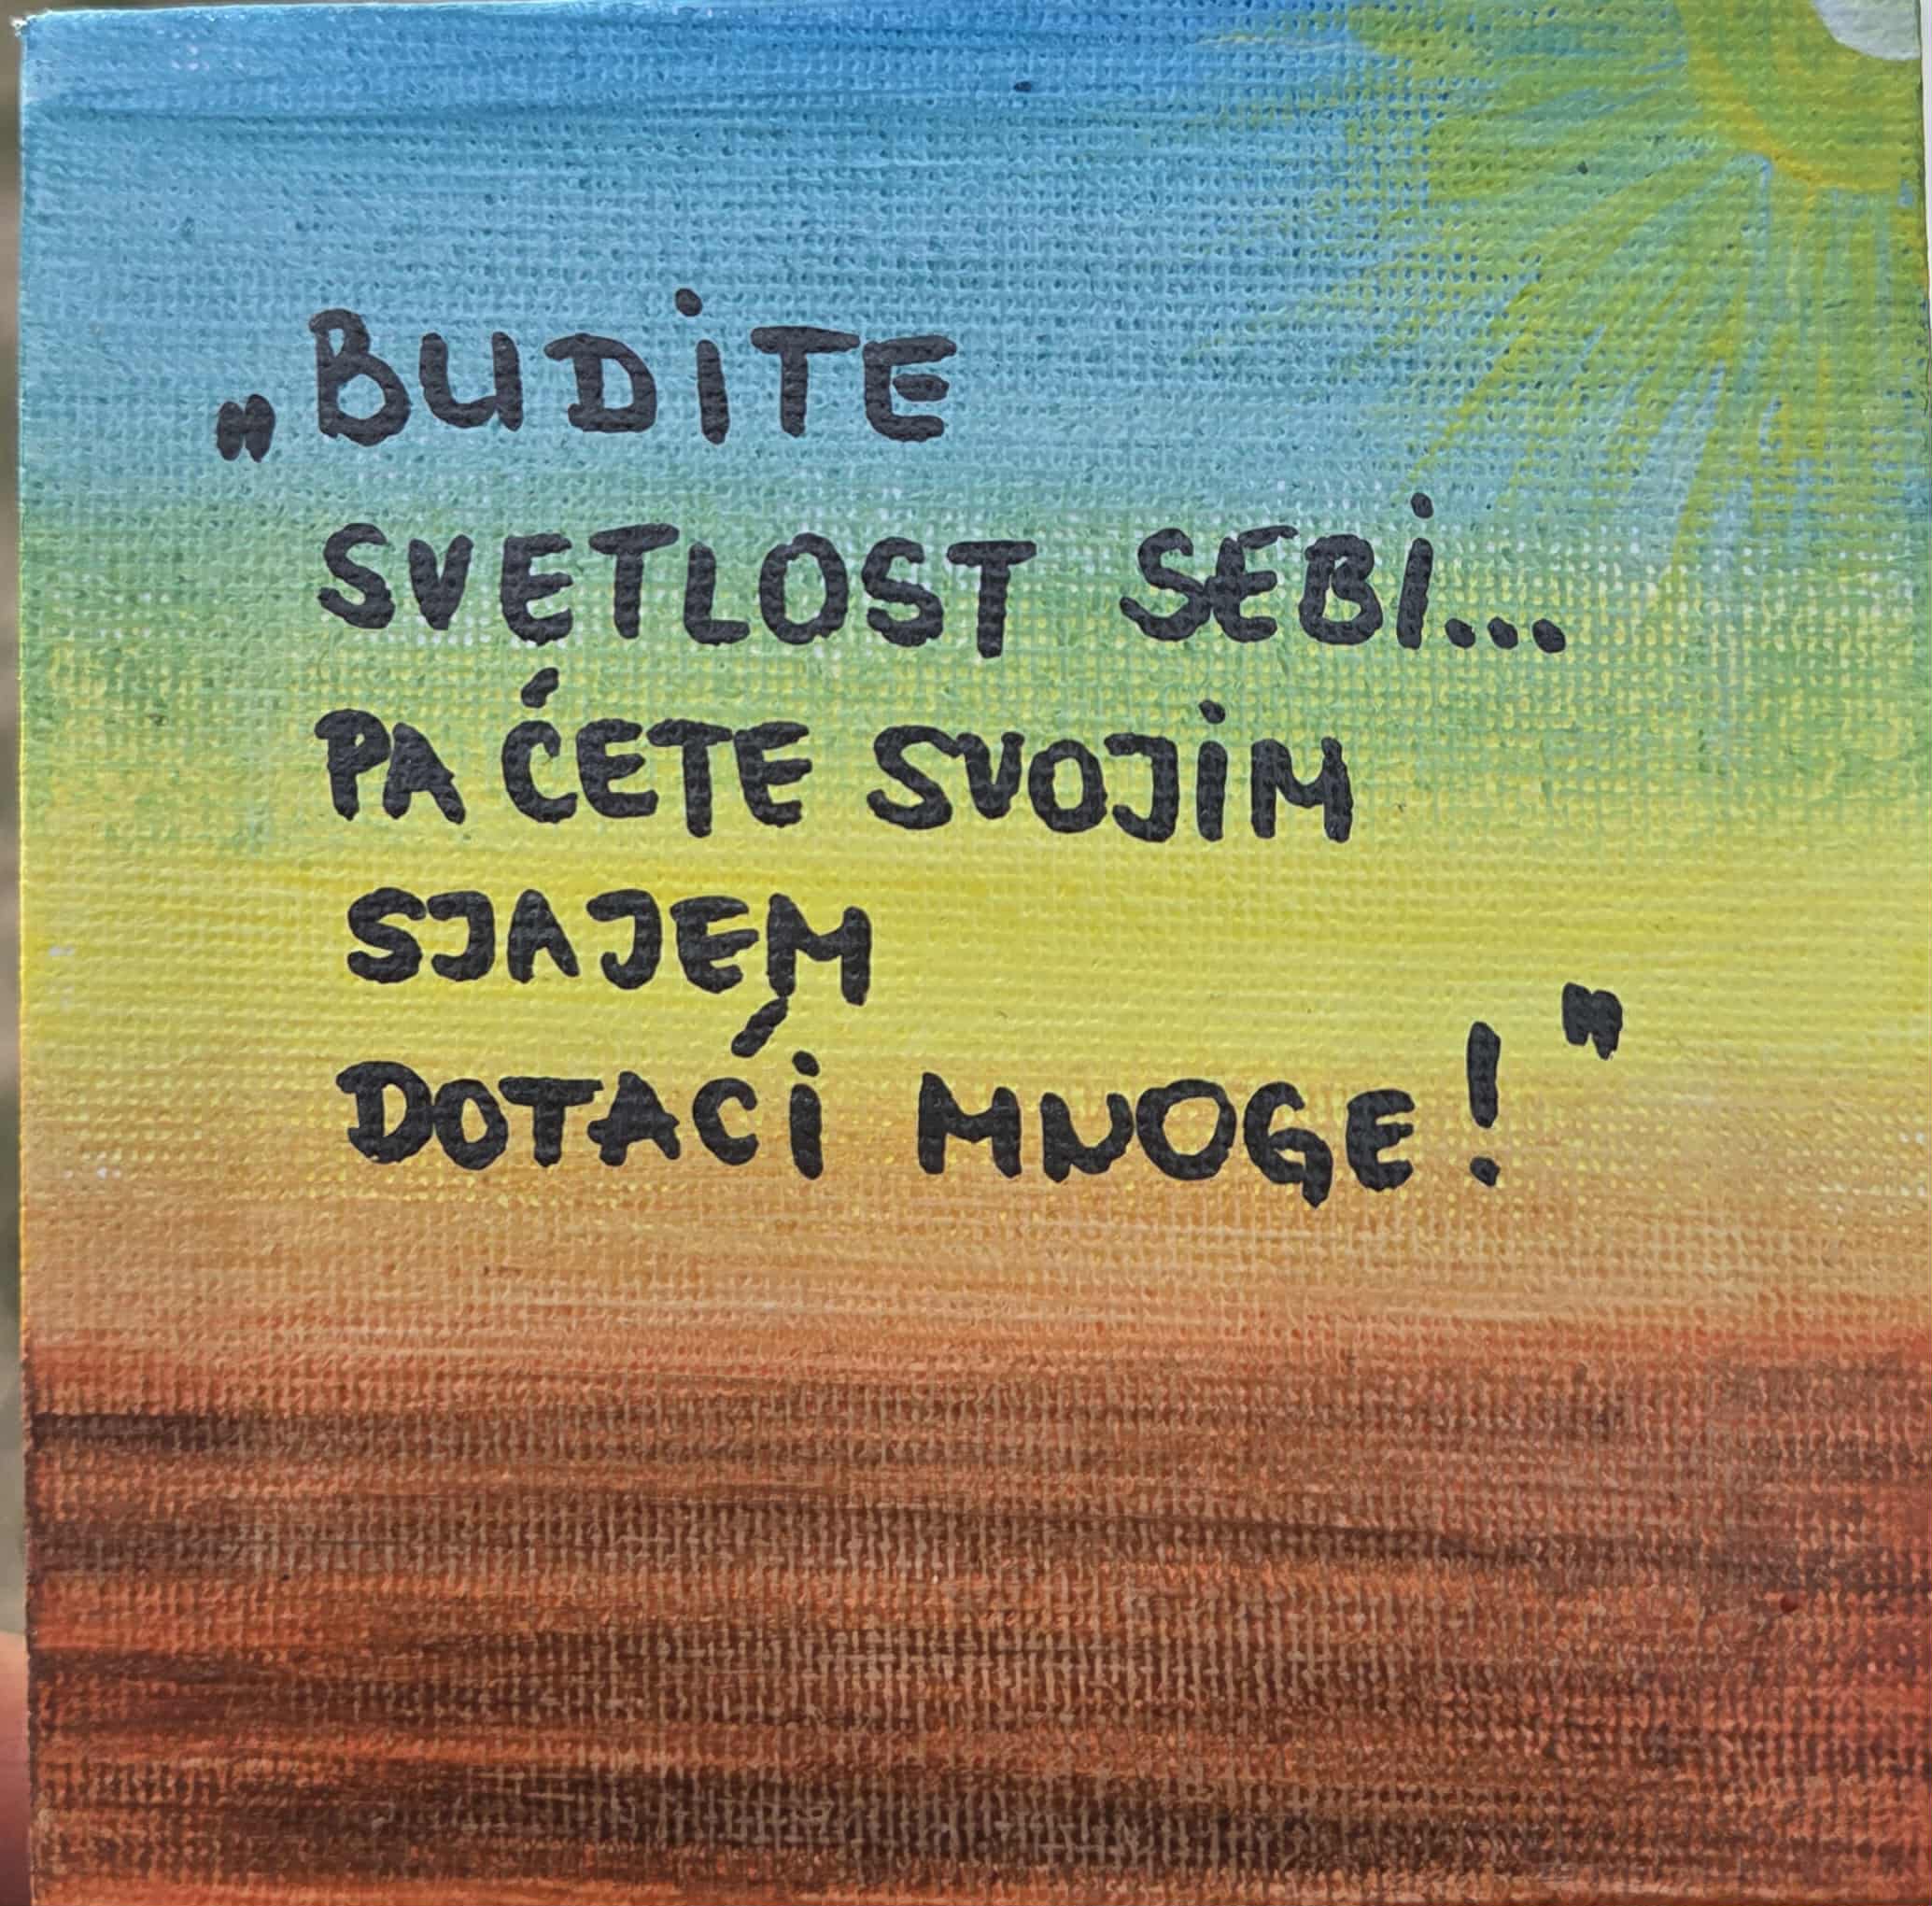 „BUDITE
SVETLOST SEBI...
PA ĆETE SVOJIM
SJAJEM
DOTAĆI MNOGE!"